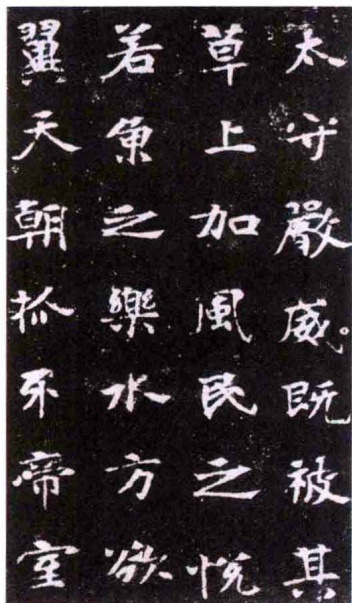 太守嚴威既被其
草上加風民之悅
若魚之樂水方欲
翼天朝抓牙帝室